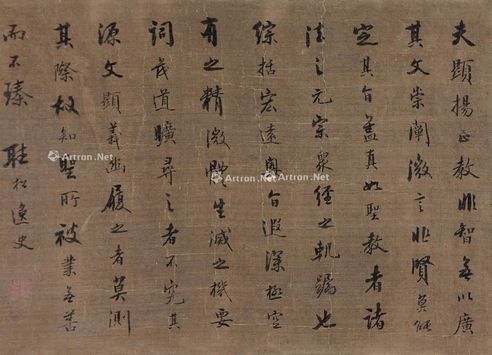 夫顯揚正教非智無以廣
其文崇闡微言非賢莫能
定其旨蓋真如聖教者諸
法之元宗眾經之軌躅也
綜括宏遠奧旨遐深極空
有之精微體生滅之機要
詞茂道曠尋之者不究其
源文顯義幽履之者莫測
其際故知聖所被業無善
而不臻 松逸史
Artron.Net
Artron.Net
Artron.Net
Artron.Net